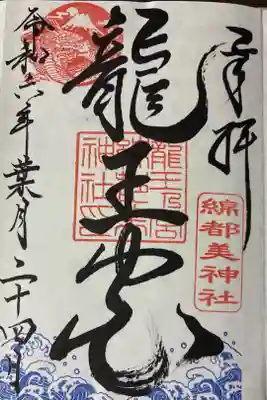 奉拝
綿都美神社
龍王宮
令和六年葉月二十四日